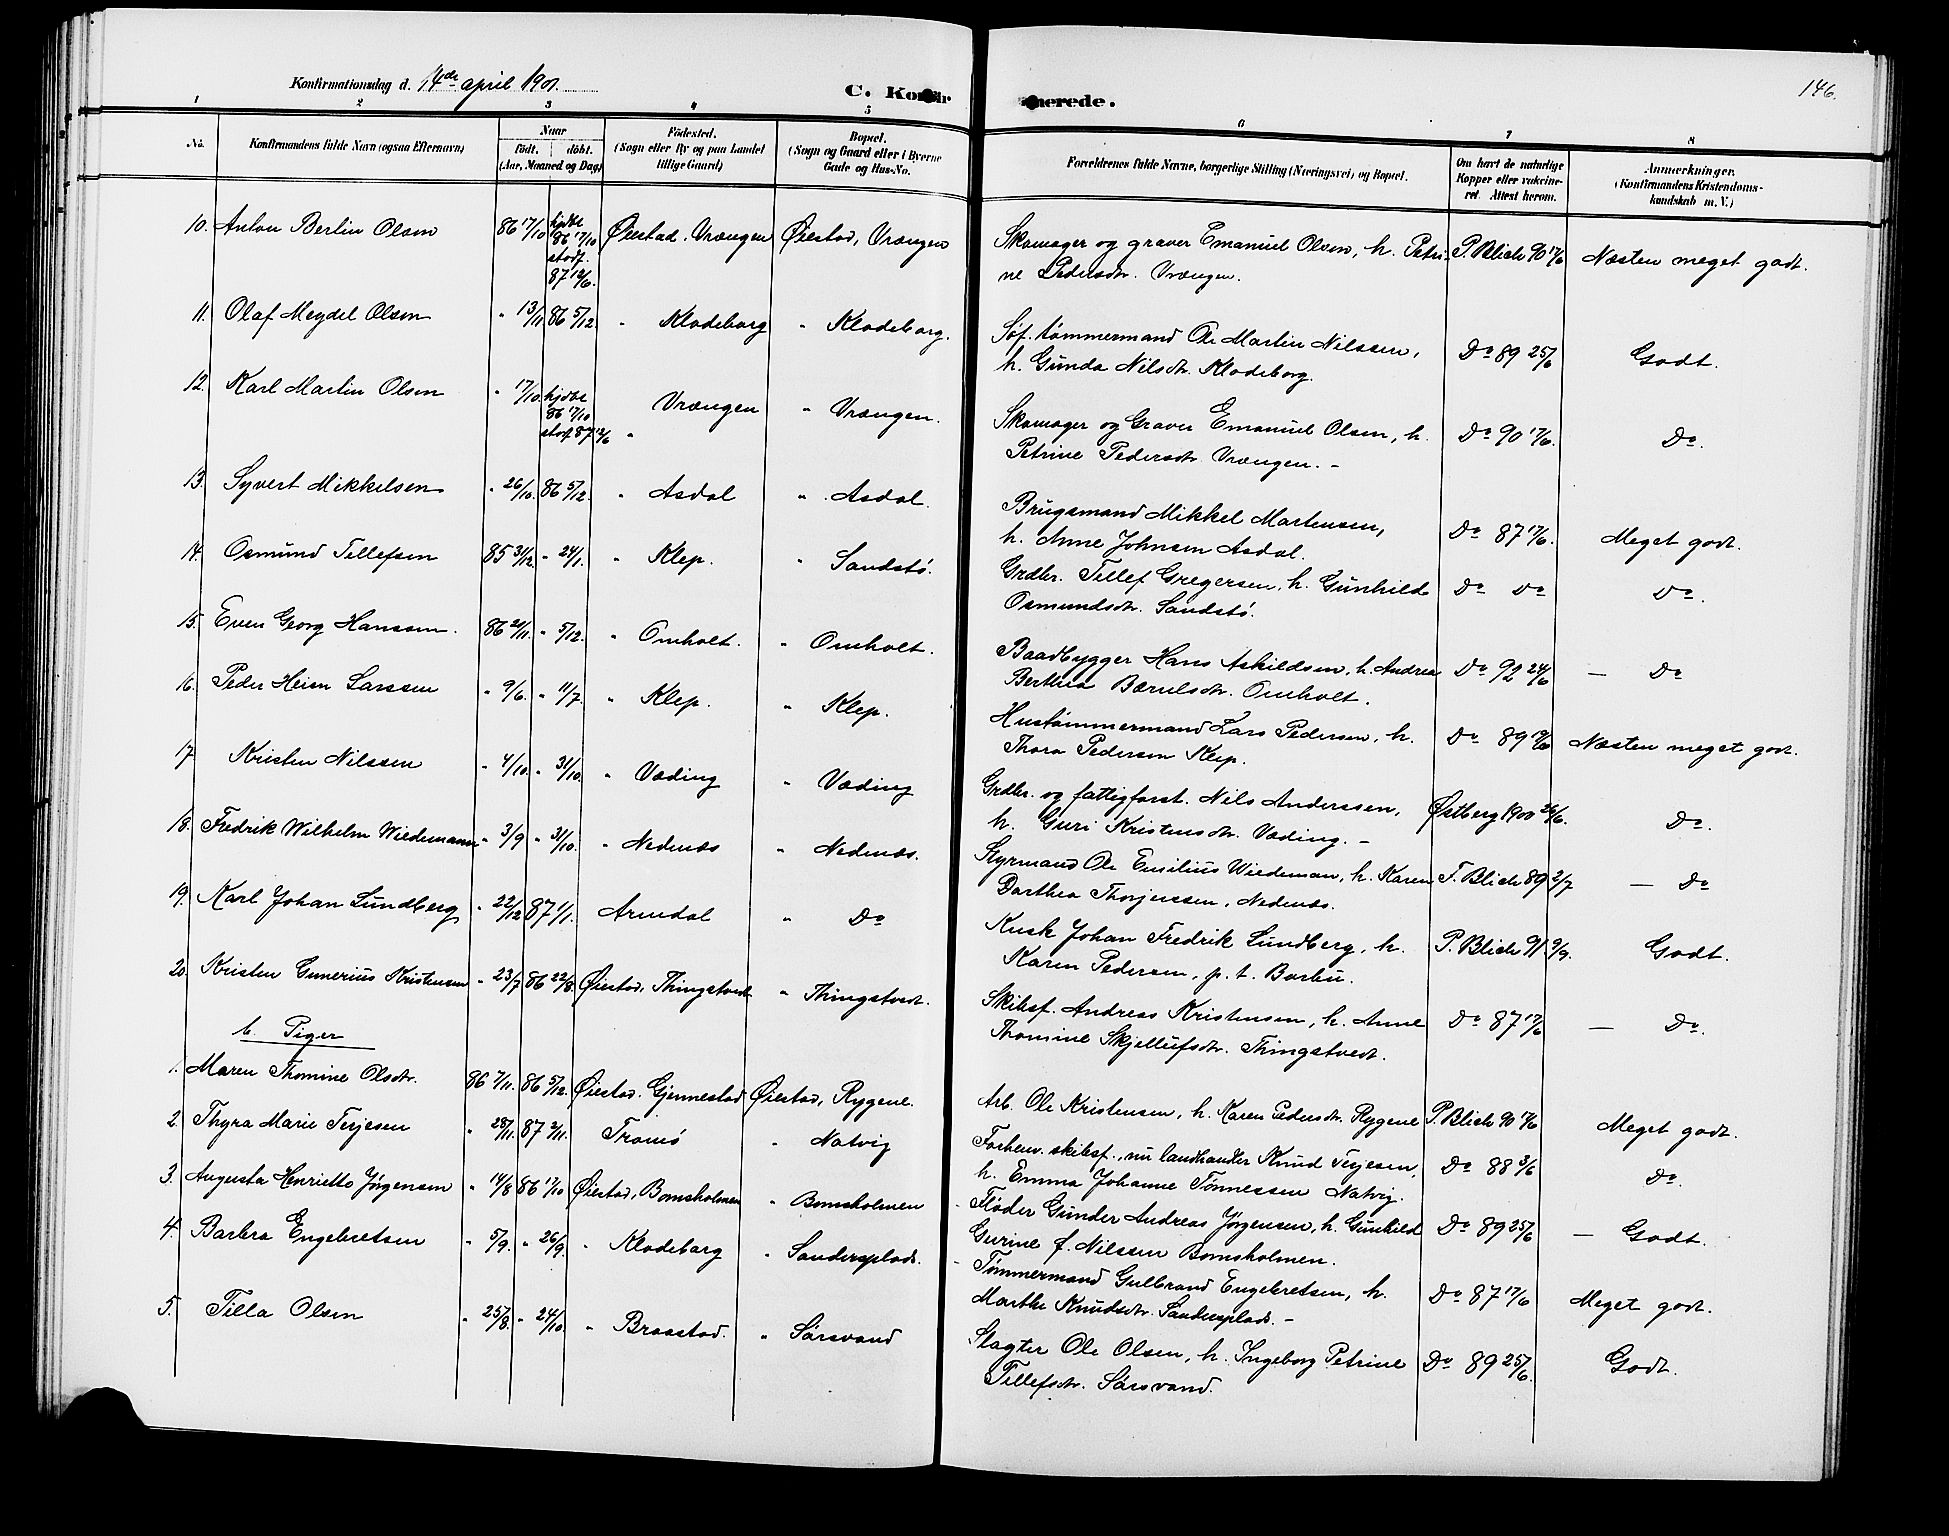 Konfirmationsdag d. 14de april 1901.
C. Konfir
merede.
146.
1 2 3 4 5 6 7 8
No.
Konfirmandens fulde Navn (ogsaa Efternavn)
Naar
födt. döbt.
(Aar, Maaned og Dag)
Födested.
(Sogn eller By og paa Landet
tillige Gaard)
Bopæl.
(Sogn og Gaard eller i Byerne
Gade og Hus-No.
Forældrenes fulde Navne, borgerlige Stilling (Næringsvei) og Bopæl.
Om havt de naturlige
Kopper eller vakcine-
ret. Attest herom.
Anmærkninger.
(Konfirmandens Kristendoms-
kundskab m. V.)
10. Anton Berlin Olsen 86 17/10 hjdbt 86 17/10 stadf. 87 12/6. Øiestad, Vrængen Øiestad, Vrængen Skomager og graver Emanuel Olsen, h. Petri- P. Blich 90 17/6 Næsten meget godt.
ne Pedersdtr. Vrængen.
11. Olaf Meydel Olsen " 13/11 86 5/12. " Klodeborg " Klodeborg. Søf. tømmermand Ole Martin Nilssen, Do 89 25/6 Godt.
h. Gunda Nilsdtr. Klodeborg.
12. Karl Martin Olsen " 17/10. hjdbt 86 17/10 stadf. 87 12/6 " Vrængen " Vrængen. Skomager og Graver Emanuel Olsen, h. Do 90 17/6. Do.
Petrine Pedersdtr. Vrængen. -
13. Syvert Mikkelsen " 26/10. 86 5/12. " Asdal " Asdal. Brugsmand Mikkel Martensen, Do 87 17/6. Meget godt.
h. Anne Johnsen Asdal.
14. Osmund Tellefsen 85 31/12 " 24/1. " Klep. " Sandstø. Grdbr. Tellef Gregersen, h. Gunhild Do Do Do.
Osmundsdtr. Sandstø.
15. Even Georg Hanssen. 86 21/11. " 5/12. " Omholt. " Omholt. Baadbygger Hans Askildsen, h. Andrea Do 92 24/6 — Do
Berthea Bærulsdtr. Omholt.
16. Peder Heim Larssen " 9/6. " 11/7 " Klep. " Klep. Hustømmermand Lars Pedersen, h. Do 89 Næsten meget godt.
Thora Pedersen Klep.
17 Kristen Nilssen " 4/10. " 31/10. " Væding " Væding Grdbr. og fattigforst. Nils Anderssen, Østberg 1900 26/6. Do.
h. Guri Kristensdtr. Væding. -
18. Fredrik Wilhelm Wiedemann " 3/9 " 31/10. " Nedenæs " Nedenæs. Styrmand Ole Emilius Wiedeman, h. Karen T. Blich 89 2/7 — Do
Dorthea Thorjenssen, Nedenæs.
19. Karl Johan Lundberg " 22/12 87 1/1. Arendal " Do Kusk Johan Fredrik Lundberg, h. P. Blich 91. 9/9. Godt.
Karen Pedersen, p. t. Barbu.
20. Kristen Gunerius Kristensen " 23/7 86 22/8. Øiestad, Thingstvedt " Thingstvedt. Skibsf. Andreas Kristensen, h. Anne Do 87 17/6 — Do.
Thomine Skjellufsdtr. Thingstvedt.
b. Piger
1. Maren Thomine Olsdtr. 86 7/11. 86 5/12. Øiestad, Gjennestad Øiestad, Rygene. Arb. Ole Kristensen, h. Karen Pedersdtr. Rygene P. Blich 90 17/6 Meget godt.
2. Thyra Marie Terjesen " 28/11. 87 2/11. Tromø " Natvig Forhenv. skibsf., nu landhandler Knud Terjesen, Do 88 3/6 Do.
h. Emma Johanne Tønnessen Natvig.
3. Augusta Henriette Jørgensen " 14/8 86 17/10 Øiestad, Bomsholmen " Bomsholmen Fløder Gunder Andreas Jørgensen, h. Gunhild Do 89 25/6 — Godt.
Gurine f. Nilssen Bomsholmen.
4. Barbra Engebretsen " 5/9. " 26/9. " Klodeborg " Sandersplads. Tømmermand Gulbrand Engebretsen, h. Do 87 17/6 Meget godt.
Marthe Knudsdtr. Sandersplads. -
5. Tilla Olsen " 25/8. " 24/10. " Braastad. " Sørsvand Slagter Ole Olsen, h. Ingeborg Petrine Do 89 25/6. Godt.
Tellefsdtr. Sørsvand.